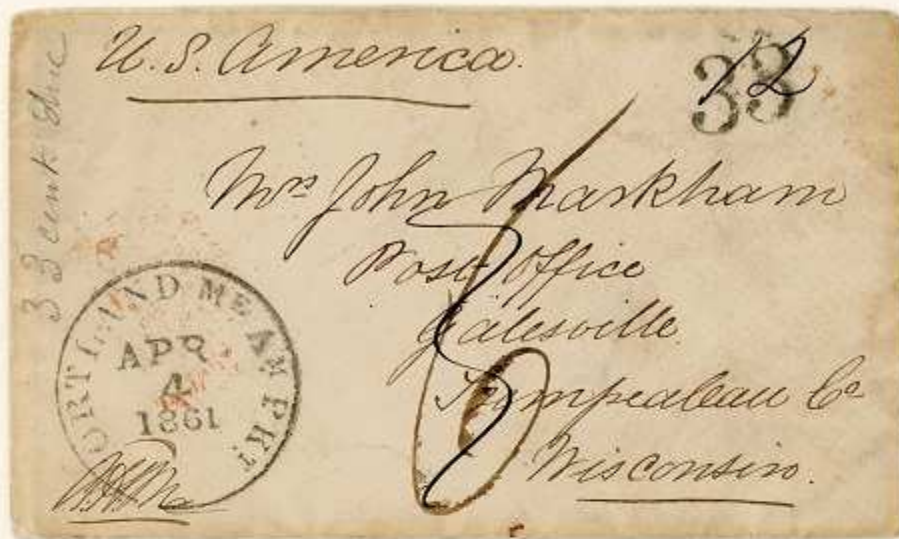 U.S. America.
33
12
Mrs John Markham
Post Office
Galesville
Trempealeau Co
Wisconsin.
6
PORTLAND ME AM PKT.
APR
4
1861
33 cent due